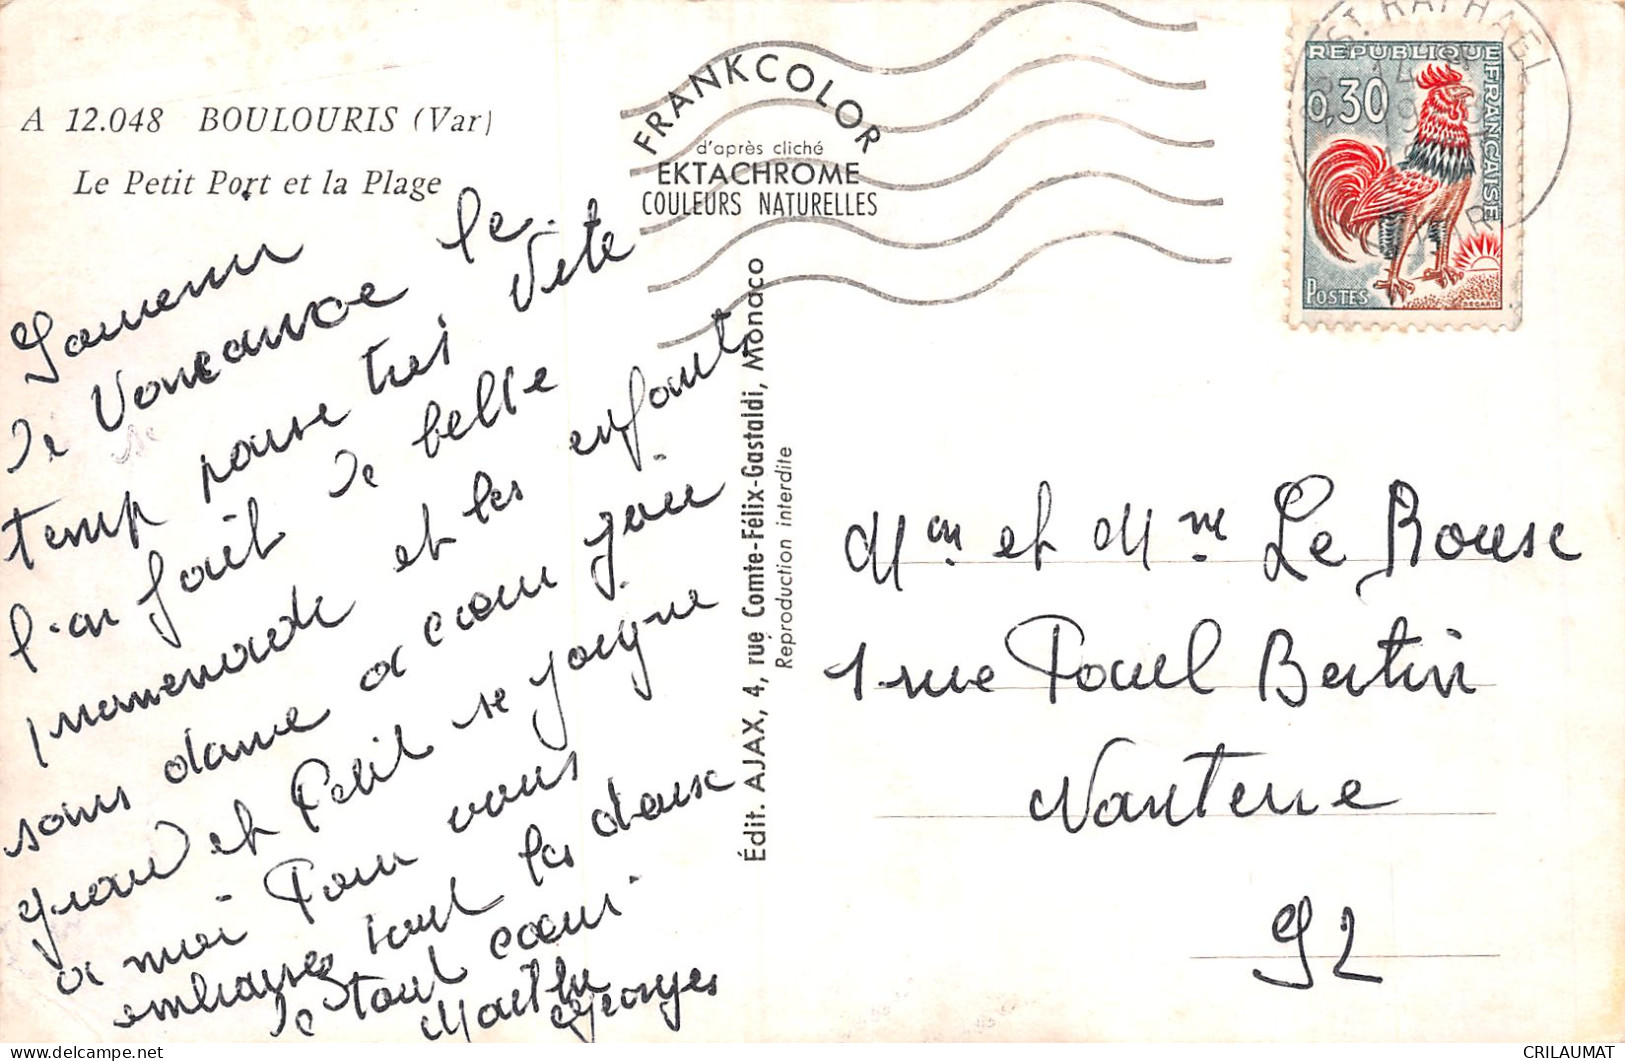 A 12.048 BOULOURIS (Var)
Le Petit Port et la Plage
Souvenir
de Voncance le
temp passe tres Vite
l'on fait de belle
promenade et les enfant
sons danse a coeur joie
grand et Petit se joigne
a moi Pour vous
embrasser tout les deux
de tout coeur
Marthe
Georges
FRANKCOLOR
d'après cliché
EKTACHROME
COULEURS NATURELLES
Édit. AJAX, 4, rue Comte-Félix-Gastaldi, Monaco
Reproduction interdite
ST RAPHAEL
VAR
REPUBLIQUE FRANCAISE
0,30
POSTES
DECARIS
Mr et Mme Le Rouse
1 rue Paul Bertin
Nanterre
92
CRILAUMAT